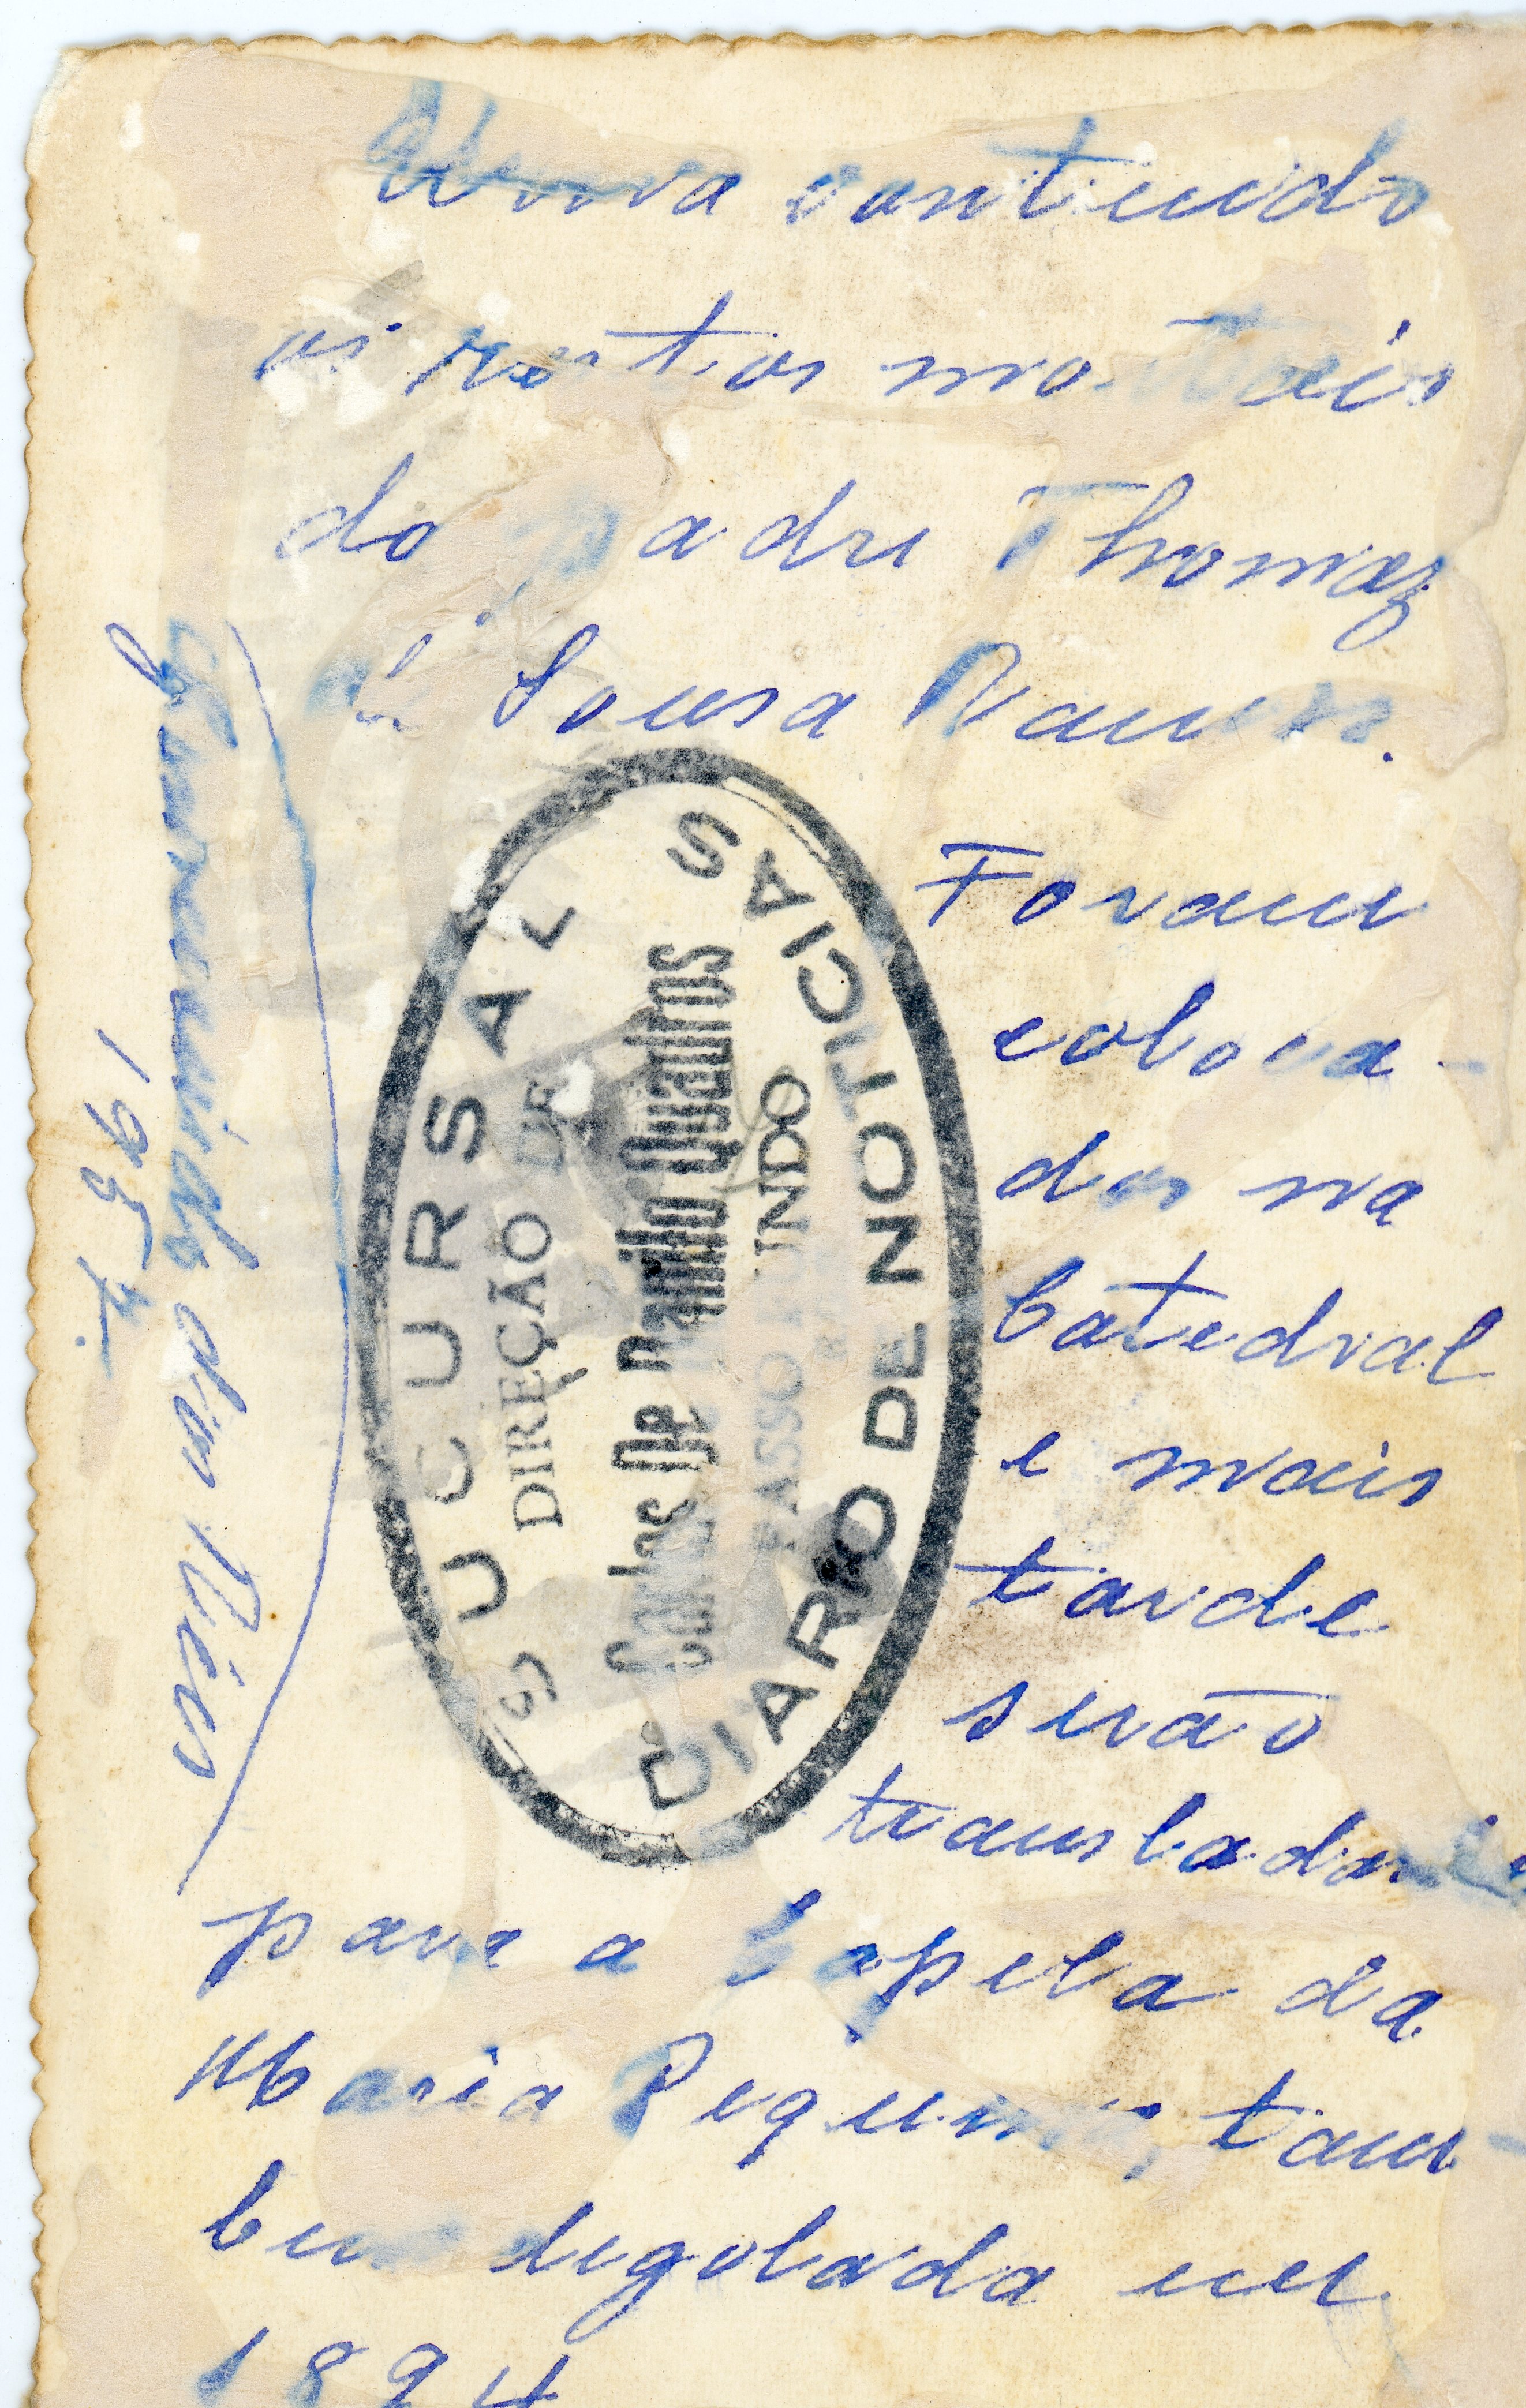 Urna contendo
os restos mortais
do Padre Thomaz
de Sousa Ramos.
Foram
coloca-
dos na
Catedral
e mais
tarde
serão
transladados
para a Capela da
Maria Pequena, tam-
bem degolada em
1894
SUCURSAL
DIREÇÃO DE
Carlos De Danilo Quadros
PASSO FUNDO
DIARIO DE NOTICIAS
dos Réus
1954.